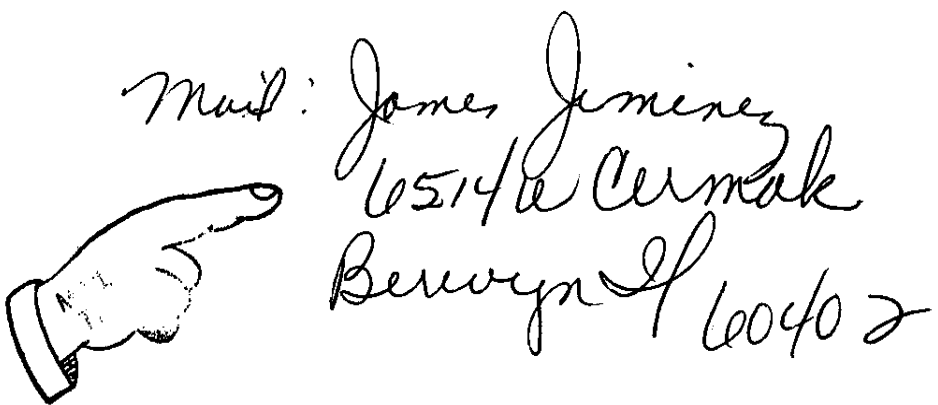 Mail: James Jiminez
6514 W Cermak
Berwyn Il 60402